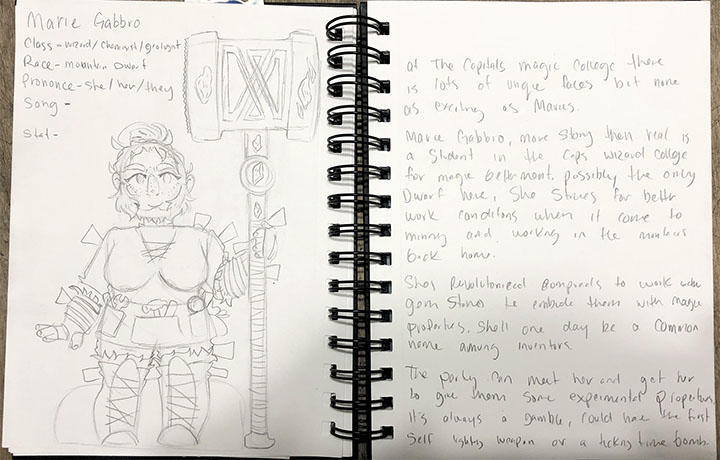 Marie Gabbro
Class - wizard/chemist/geologist
Race - mountain Dwarf
Prononce - she/her/they
Song -
Stat -
at The Capitals magic College there
is lots of uniqe faces bit none
as exciting as Maries.
Marie Gabbro, more story then real is
a Student in the Caps wizard college
for magic betterment. possibly the only
Dwarf here, She Strives for better
work conditions when it come to
mining and working in the
back home.
Shes Revolutionized to work with
gem Stones to them with magic
properties. Shell one day be a Common
name amung inventors.
The party can meet her and get her
to give them some experimental properties
it's always a gamble, could have the first
Self lighting weapon or a ticking time bomb.